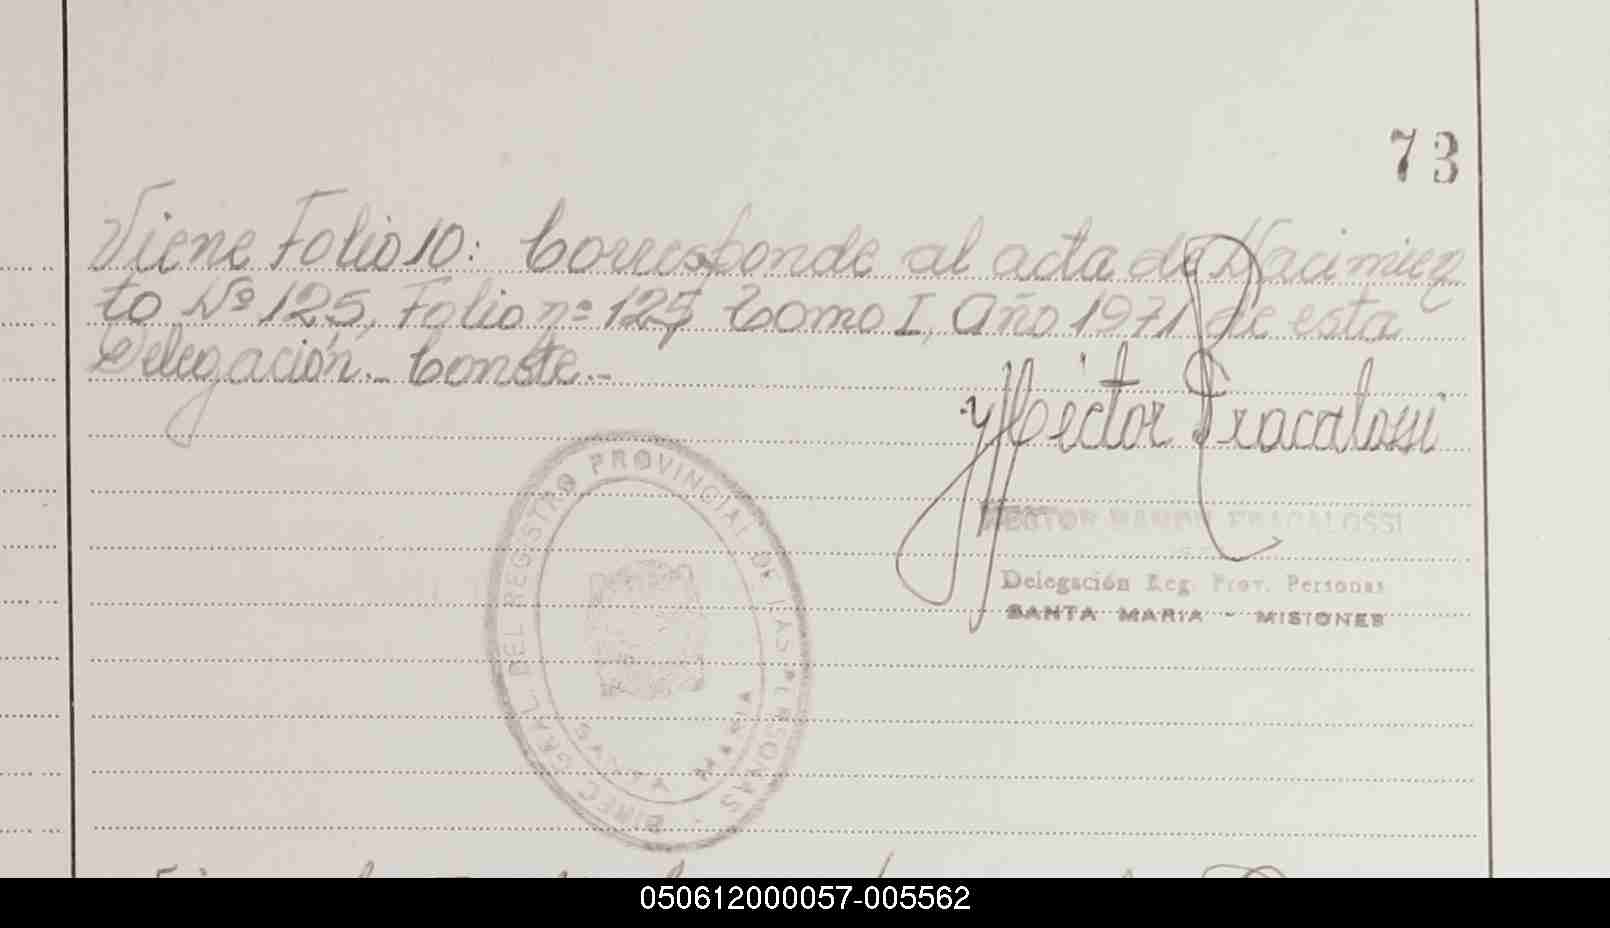 73
Viene Folio 10: Corresponde al acta de Nacimien
to Nº 125, Folio nº 125, Tomo I, Año 1971 de esta
Delegación.- Conste.-
Héctor R Fracalossi
HECTOR RAMON FRACALOSSI
Delegación Reg. Prov. Personas
SANTA MARIA - MISIONES
DIREC. GRAL. DEL REGISTRO PROVINCIAL DE LAS PERSONAS
SANTA MARIA
050612000057-005562